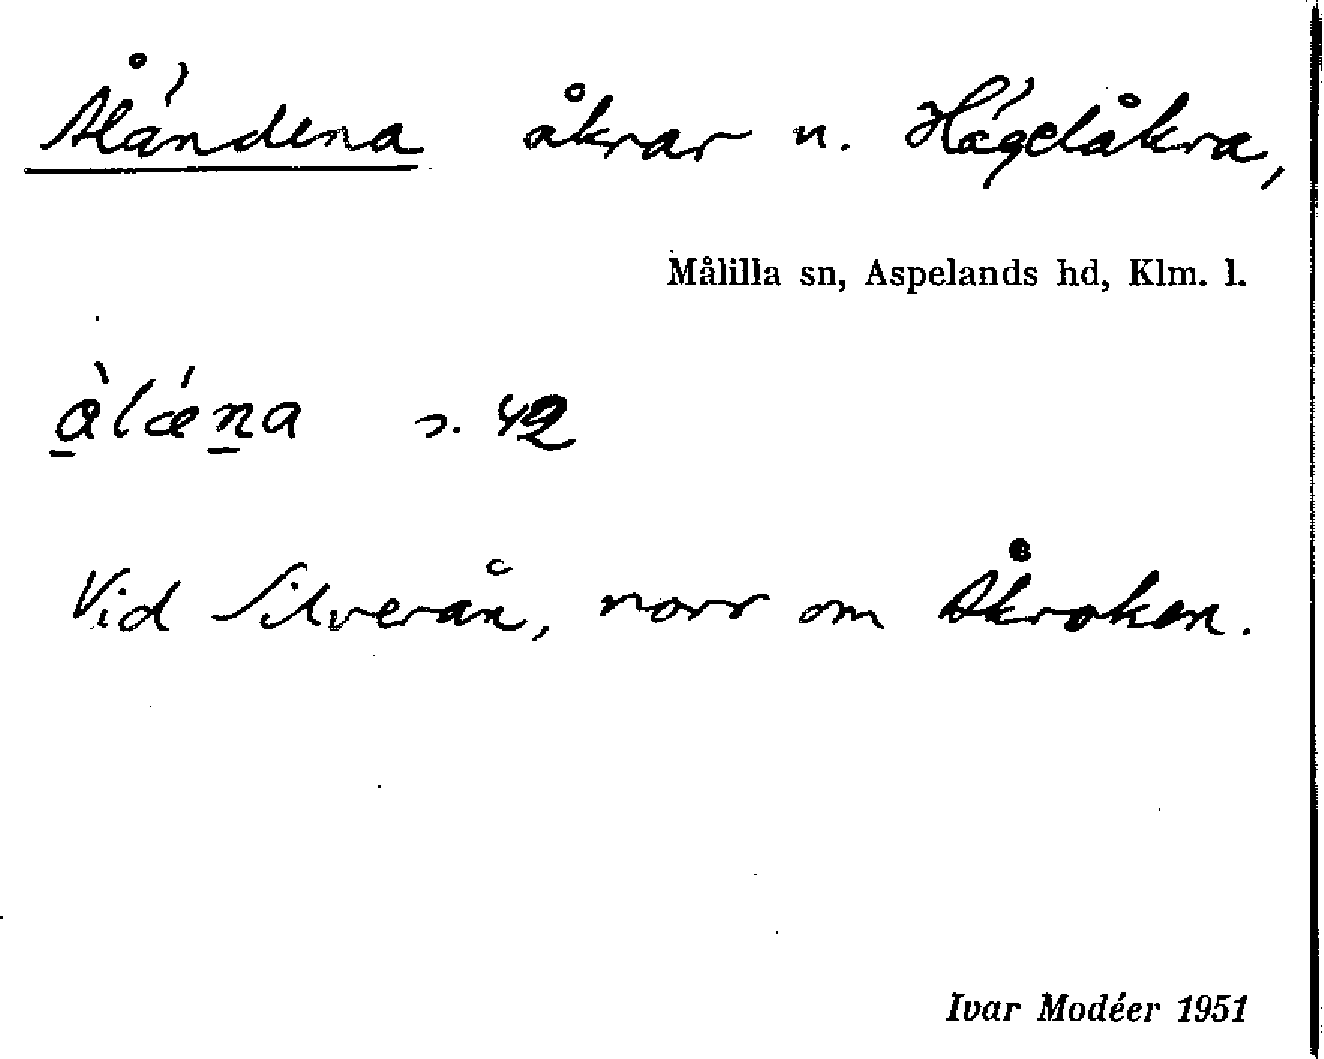 Åländena åkrar n. Hägelåkra,
Målilla sn, Aspelands hd, Klm. l.
àlǽna s. 42
Vid Silverån, norr om Åkroken.
Ivar Modéer 1951